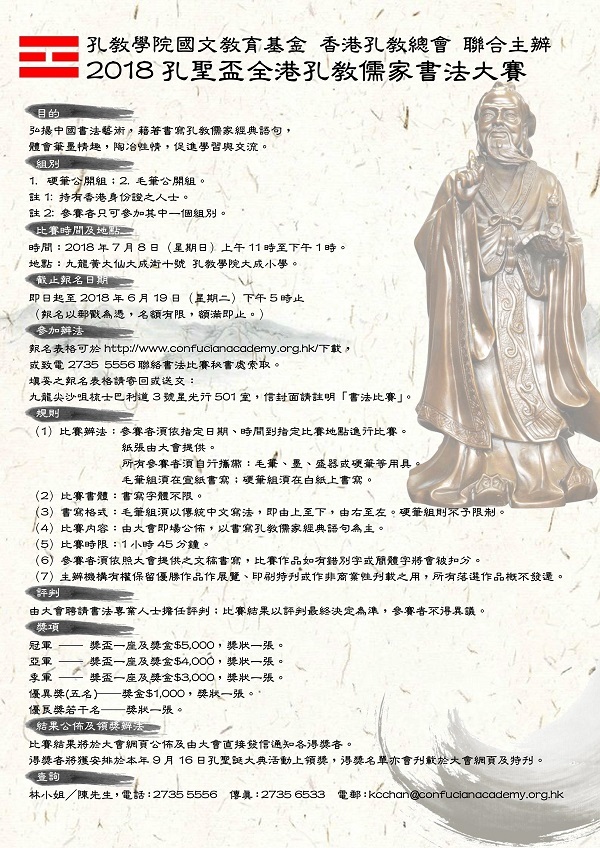 孔教學院國文教育基金 香港孔教總會 聯合主辦
2018 孔聖盃全港孔教儒家書法大賽
目的
弘揚中國書法藝術，藉著書寫孔教儒家經典語句，
體會筆墨情趣，陶冶性情，促進學習與交流。
組別
1. 硬筆公開組；2. 毛筆公開組。
註 1: 持有香港身份證之人士。
註 2: 參賽者只可參加其中一個組別。
比賽時間及地點
時間：2018 年 7 月 8 日（星期日）上午 11 時至下午 1 時。
地點：九龍黃大仙大成街十號 孔教學院大成小學。
截止報名日期
即日起至 2018 年 6 月 19 日（星期二）下午 5 時止
（報名以郵戳為憑，名額有限，額滿即止。）
參加辦法
報名表格可於 http://www.confucianacademy.org.hk/下載，
或致電 2735 5556 聯絡書法比賽秘書處索取。
填妥之報名表格請寄回或送交：
九龍尖沙咀梳士巴利道 3 號星光行 501 室，信封面請註明「書法比賽」。
規則
（1）比賽辦法：參賽者須依指定日期、時間到指定比賽地點進行比賽。
紙張由大會提供。
所有參賽者須自行攜帶：毛筆、墨、盛器或硬筆等用具。
毛筆組須在宣紙書寫；硬筆組須在白紙上書寫。
（2）比賽書體：書寫字體不限。
（3）書寫格式：毛筆組以傳統中文寫法，即由上至下，由右至左。硬筆組則不予限制。
（4）比賽內容：由大會即場公佈，以書寫孔教儒家經典語句為主。
（5）比賽時限：1 小時 45 分鐘。
（6）參賽者須依照大會提供之文稿書寫，比賽作品如有錯別字或簡體字將會被扣分。
（7）主辦機構有權保留優勝作品作展覽、印刷特刊或作非商業性刊載之用，所有落選作品概不發還。
評判
由大會聘請書法專業人士擔任評判；比賽結果以評判最終決定為準，參賽者不得異議。
獎項
冠軍 —— 獎盃一座及獎金$5,000，獎狀一張。
亞軍 —— 獎盃一座及獎金$4,000，獎狀一張。
季軍 —— 獎盃一座及獎金$3,000，獎狀一張。
優異獎(五名)——獎金$1,000，獎狀一張。
優良獎若干名——獎狀一張。
結果公佈及領獎辦法
比賽結果將於大會網頁公佈及由大會直接發信通知各得獎者。
得獎者將獲安排於本年 9 月 16 日孔聖誕大典活動上領獎，得獎名單亦會刊載於大會網頁及特刊。
查詢
林小姐／陳先生，電話：2735 5556 傳真：2735 6533 電郵：kcchan@confucianacademy.org.hk